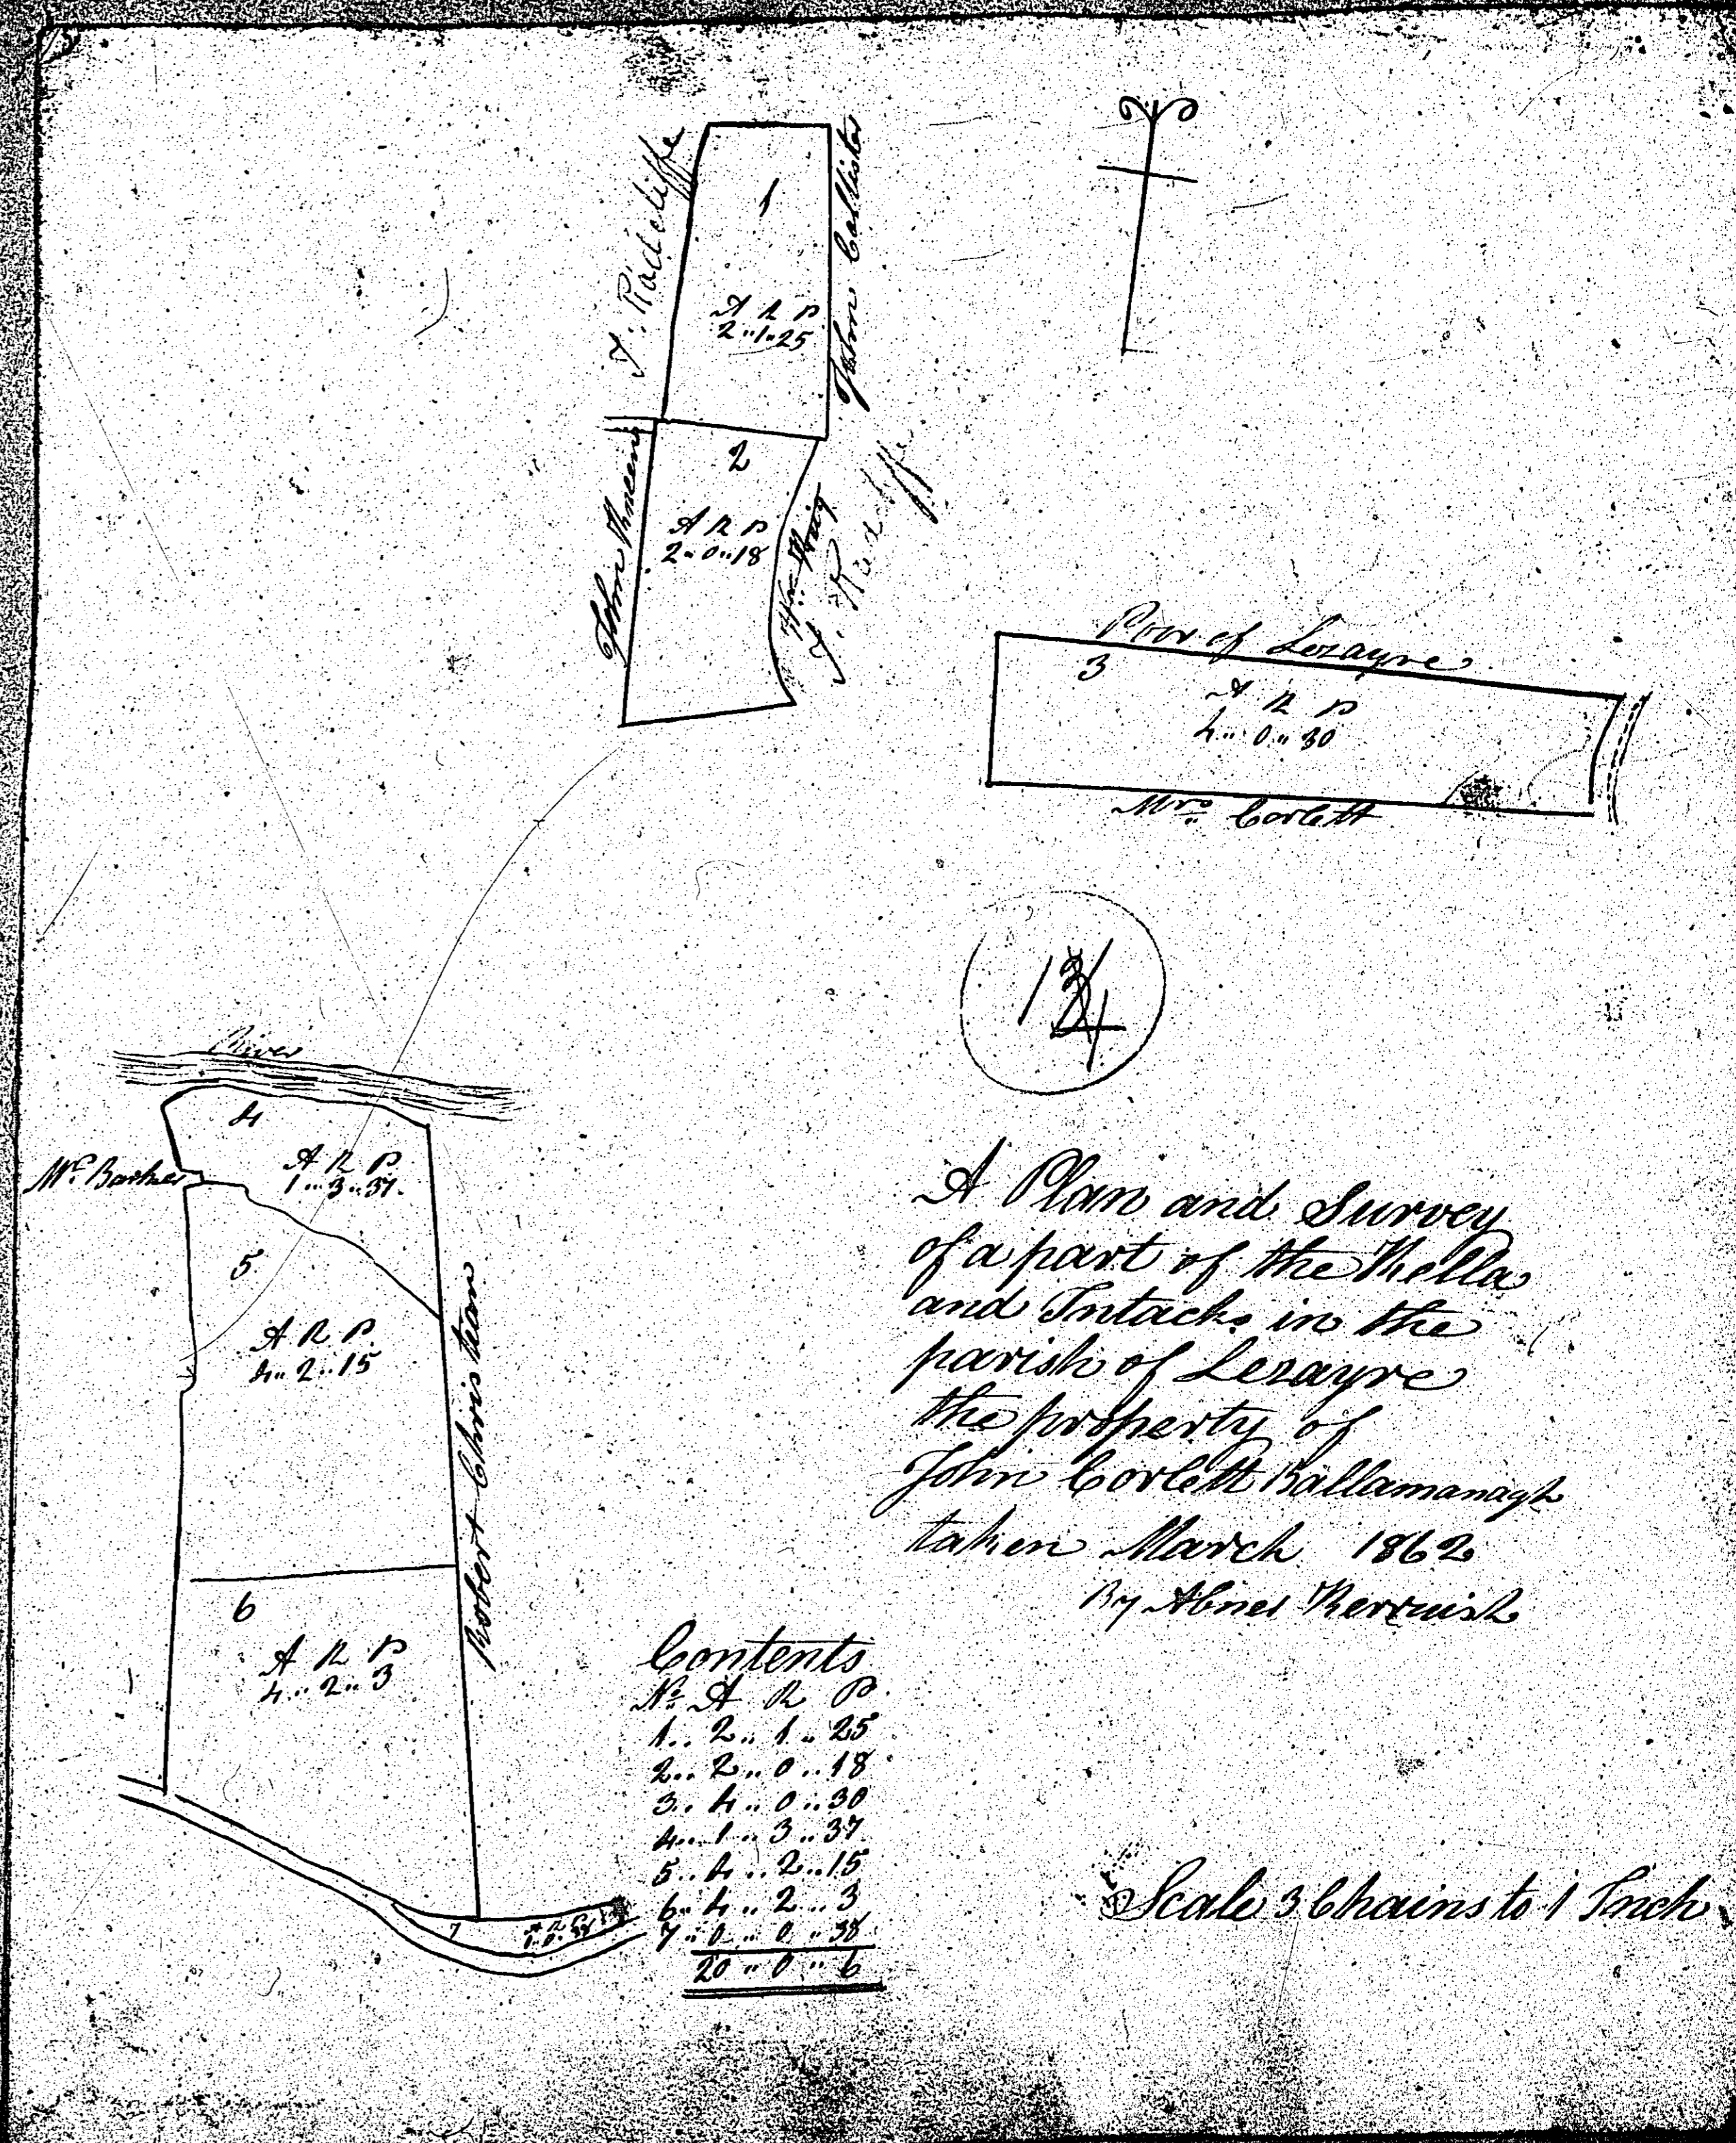 T. Radcliffe
John Callister
1
A R P
2..1..25
2
A R P
2..0..18
T. Radcliffe
Poor of Lezayre
3
A R P
4..0..30
Mrs Corlett
1 3/4
River
4
A R P
1..3..37
Mr. Barker
5
A R P
4..2..15
Robert Christean
6
A R P
4..2..3
7
A R P
A Plan and Survey
of a part of the Kella
and Intacks in the
parish of Lezayre
the property of
John Corlett Ballamanagh
taken March 1862
By Abner Kerruish
Contents
No A R P
1..2..1..25
2..2..0..18
3..4..0..30
4..1..3..37
5..4..2..15
6..4..2..3
7..0..0..38
20..0..6
Scale 3 Chains to 1 Inch